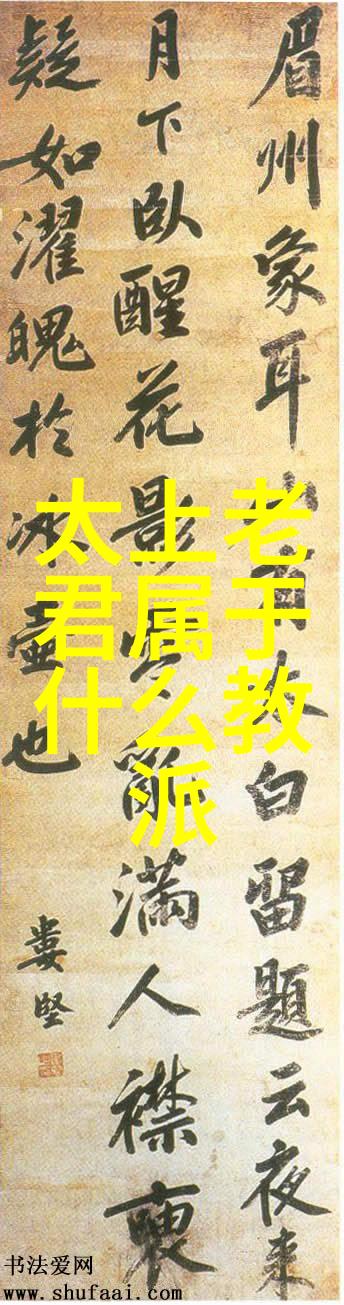 眉州象耳山有太白留題云夜来
月下臥醒花影零亂滿人襟
疑如濯魄於冰壺也
婁堅
太上老
君属于
什么教
派
书法爱网
www.shufaai.com